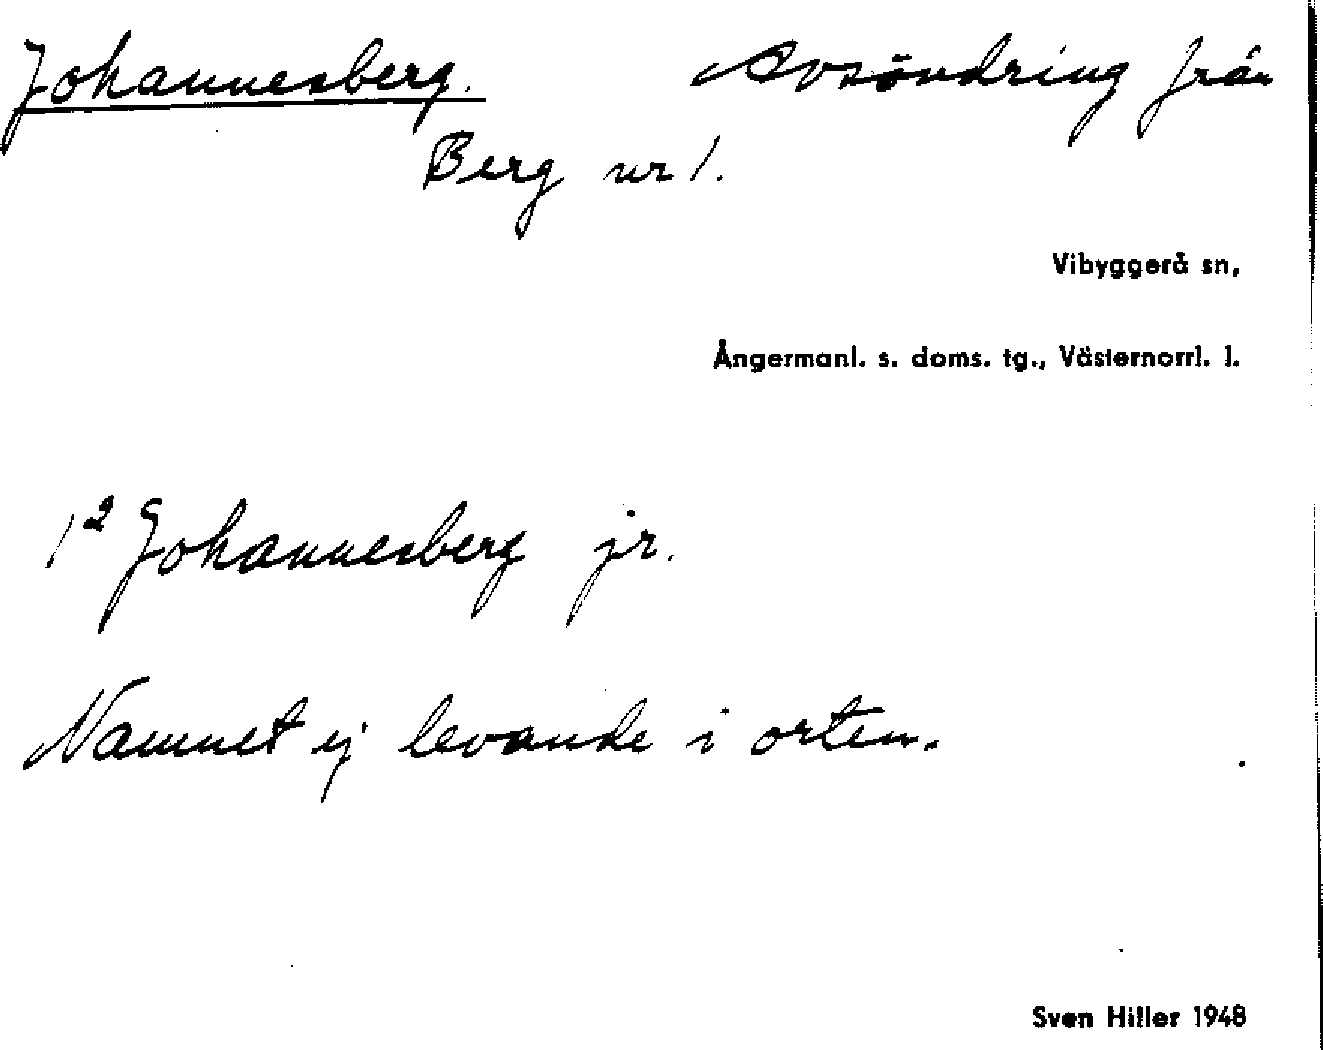 Johannesberg. Avsöndring från
Berg nr 1.
Vibyggerå sn,
Ångermanl. s. doms. tg., Västernorrl. l.
1² Johannesberg jr.
Namnet ej levande i orten.
Sven Hiller 1948